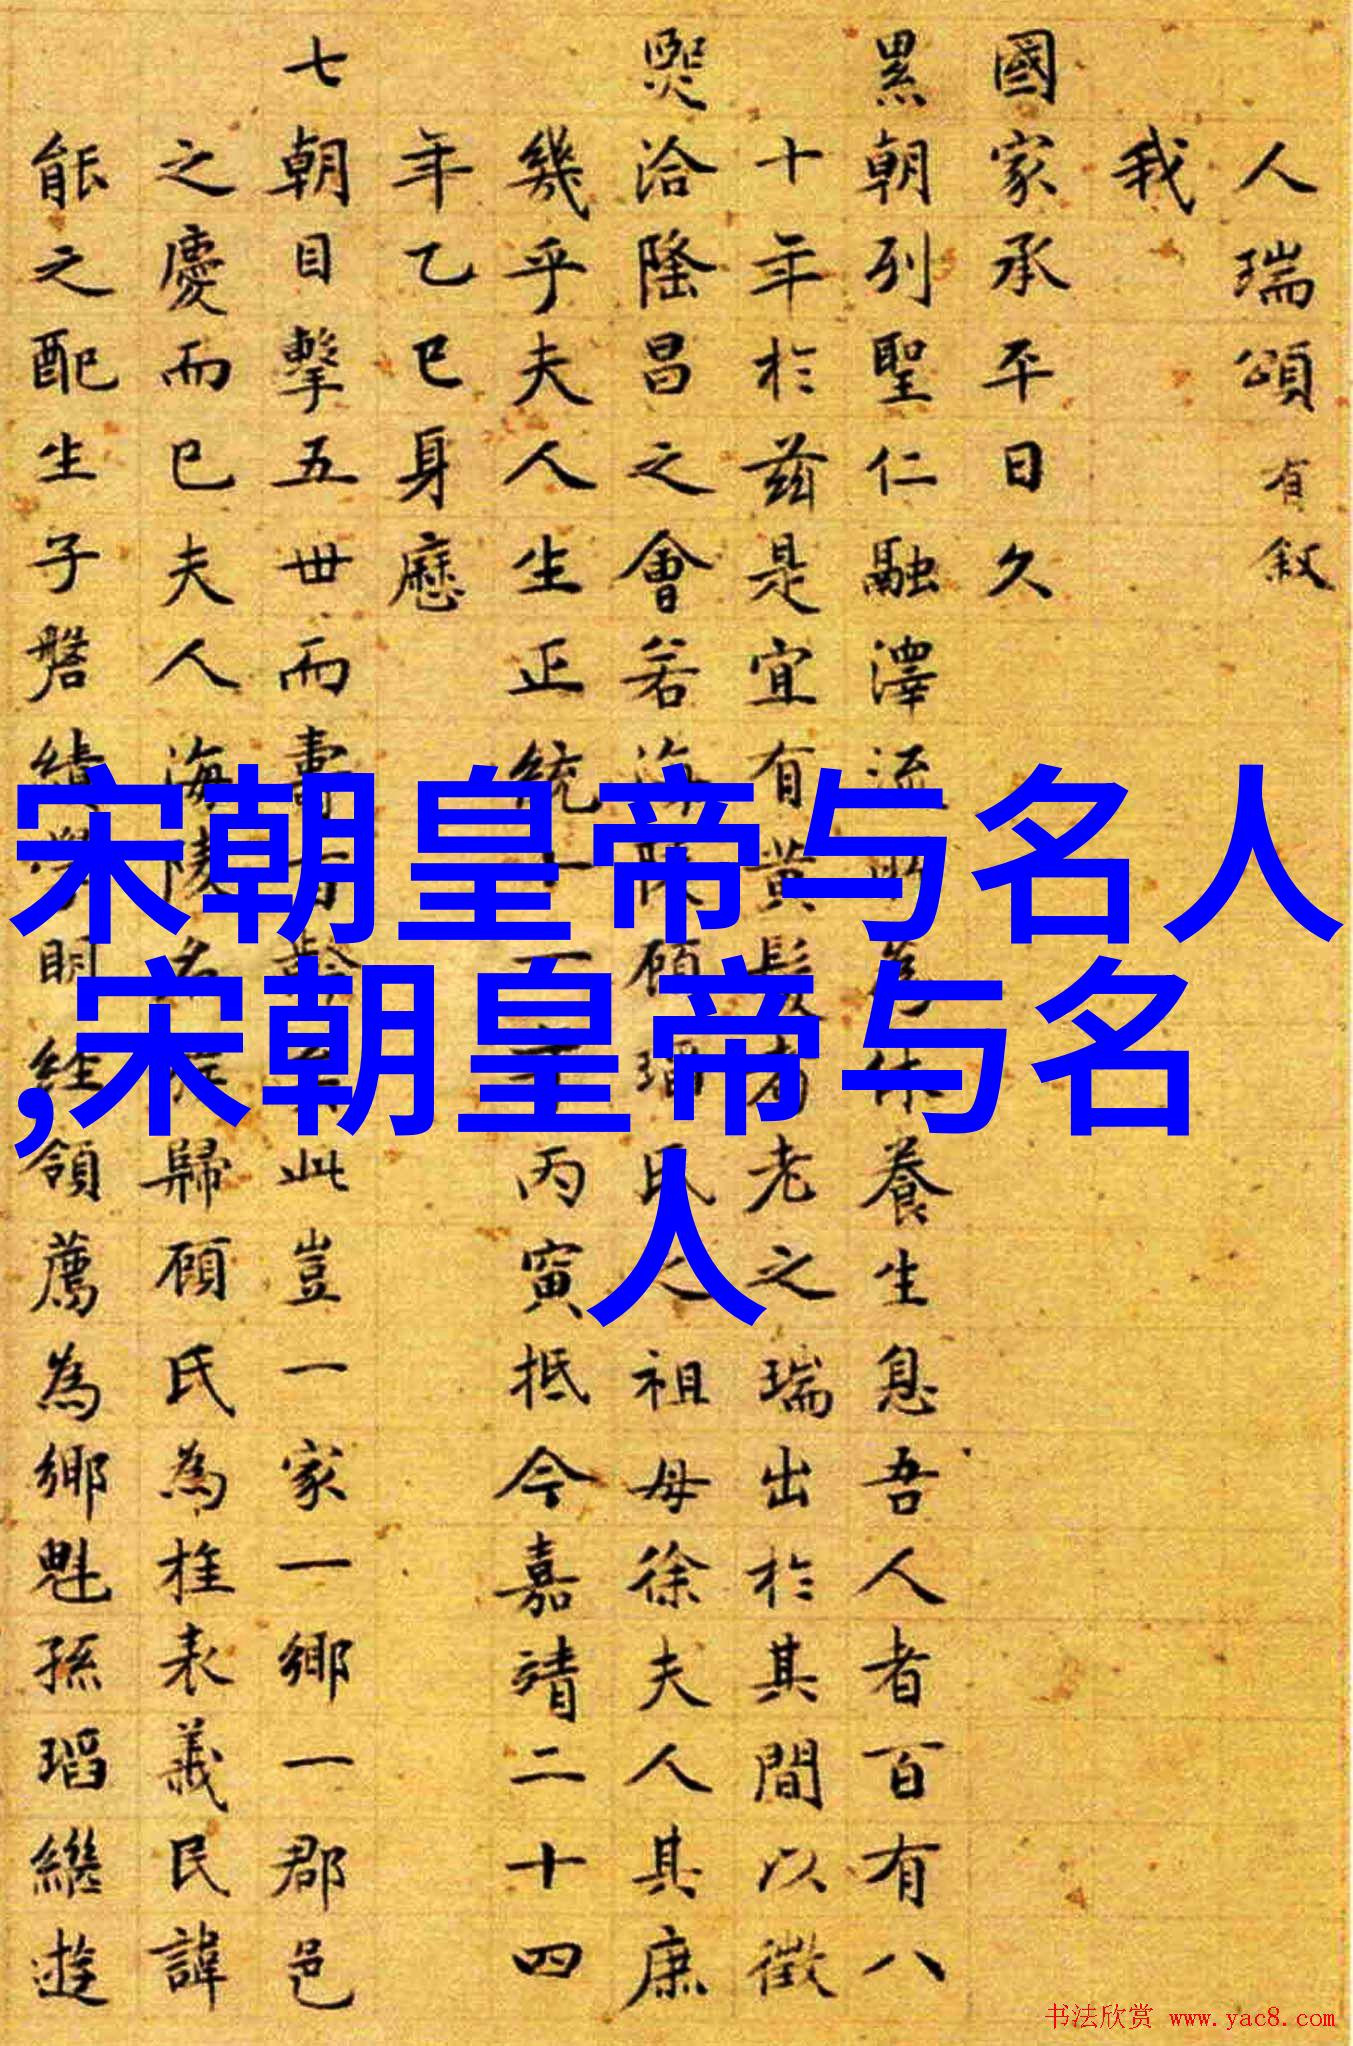 人瑞頌有叙
我
國家承平日久
累朝列聖仁融澤流
養生息吾人者百有八
十年於兹是宜有黄髮
老之瑞出於其間以徵
熙洽隆昌之會若海陵顧瑫氏之祖母徐夫人其庶
幾乎夫人生正統
丙寅抵今嘉靖二十四
年乙巳身歷
七朝目擊五世而壽
此豈一家一鄉一郡邑
之慶而已夫人海陵名
歸顧氏為旌表義民諱
能之配生子磐績學明經領薦為鄉魁孫瑫繼遊
宋朝皇帝与名人
,宋朝皇帝与名
人
书法欣赏 www.yac8.com